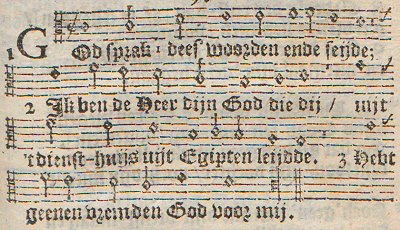 1 GOd sprak dees woorden ende seijde;
2 Ik ben de Heer dijn God die dij / uijt
'tdienst-huijs uijt Egipten leijdde. 3 Hebt
geenen vremden God voor mij.